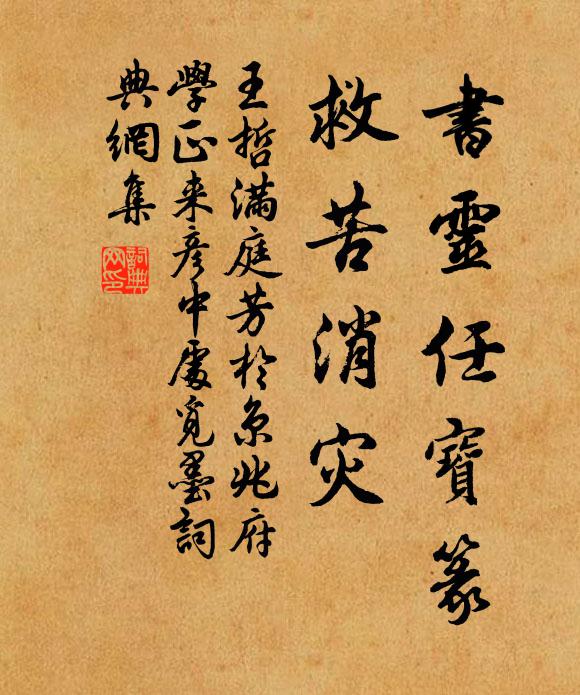 書靈任寶篆
救苦消灾
王哲滿庭芳於京兆府
學正来彥中處覓墨詞
典網集
詞典
网印